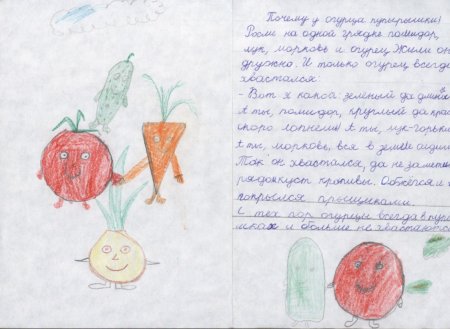 Почему у огурца пупырышки?
Росли на одной грядке помидор,
лук, морковь и огурец. Жили он
дружно. И только огурец всегда
хвастался:
- Вот я какой: зелёный да длинн
А ты, помидор, круглый да кра
скоро лопнешь! А ты, лук - горьки
А ты, морковь, вся в земле сиди
Так он хвастался, да не замети
рядом куст крапивы. Обжёгся и
покрылся прыщиками.
С тех пор огурцы всегда в пупы
шках и больше не хвастаются